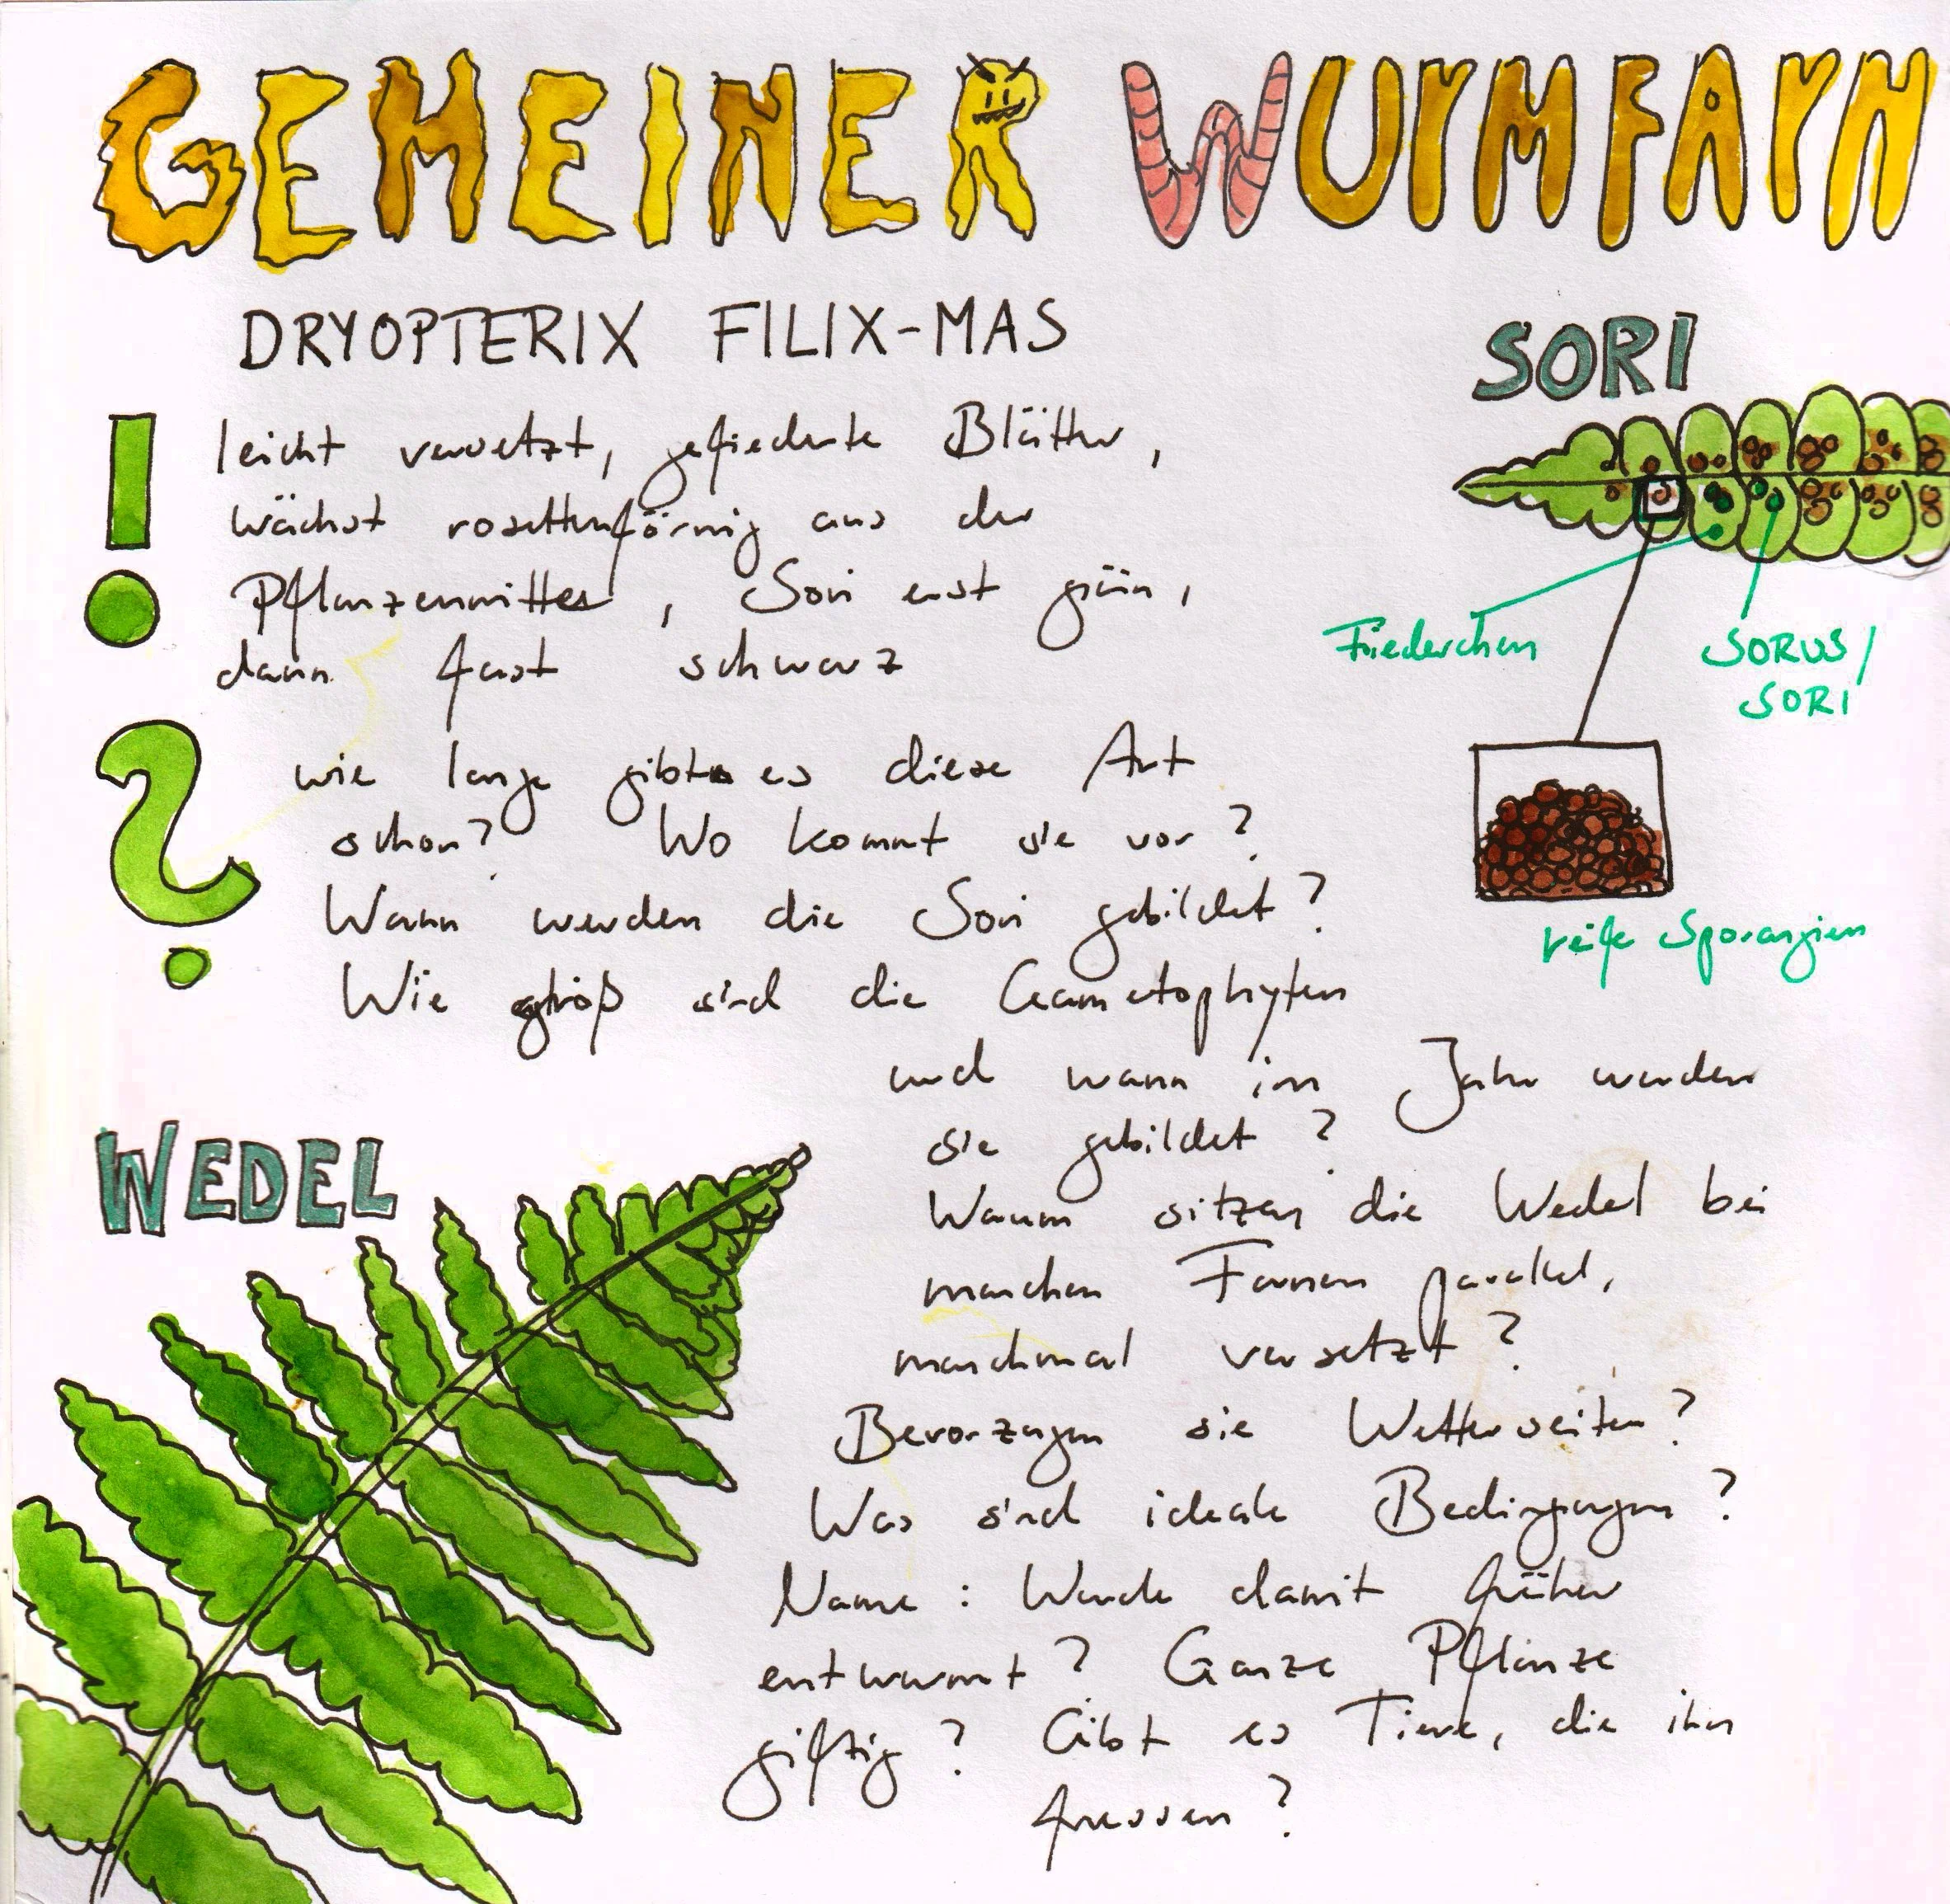 GEMEINER WURMFARN
DRYOPTERIX FILIX-MAS
leicht versetzt, gefiederte Blätter,
wächst rosettenförmig aus der
Pflanzenmitte, Sori erst grün,
dann fast schwarz
wie lange gibt es diese Art
schon? Wo kommt sie vor?
Wann werden die Sori gebildet?
Wie groß sind die Gametophyten
und wann im Jahr werden
sie gebildet?
Warum sitzen die Wedel bei
manchen Farnen parallel,
manchmal versetzt?
Bevorzugen sie Wetterseiten?
Was sind ideale Bedingungen?
Name: Wurde damit früher
entwurmt? Ganze Pflanze
giftig? Gibt es Tiere, die ihn
fressen?
SORI
Fiederchen
SORUS/
SORI
reife Sporangien
WEDEL